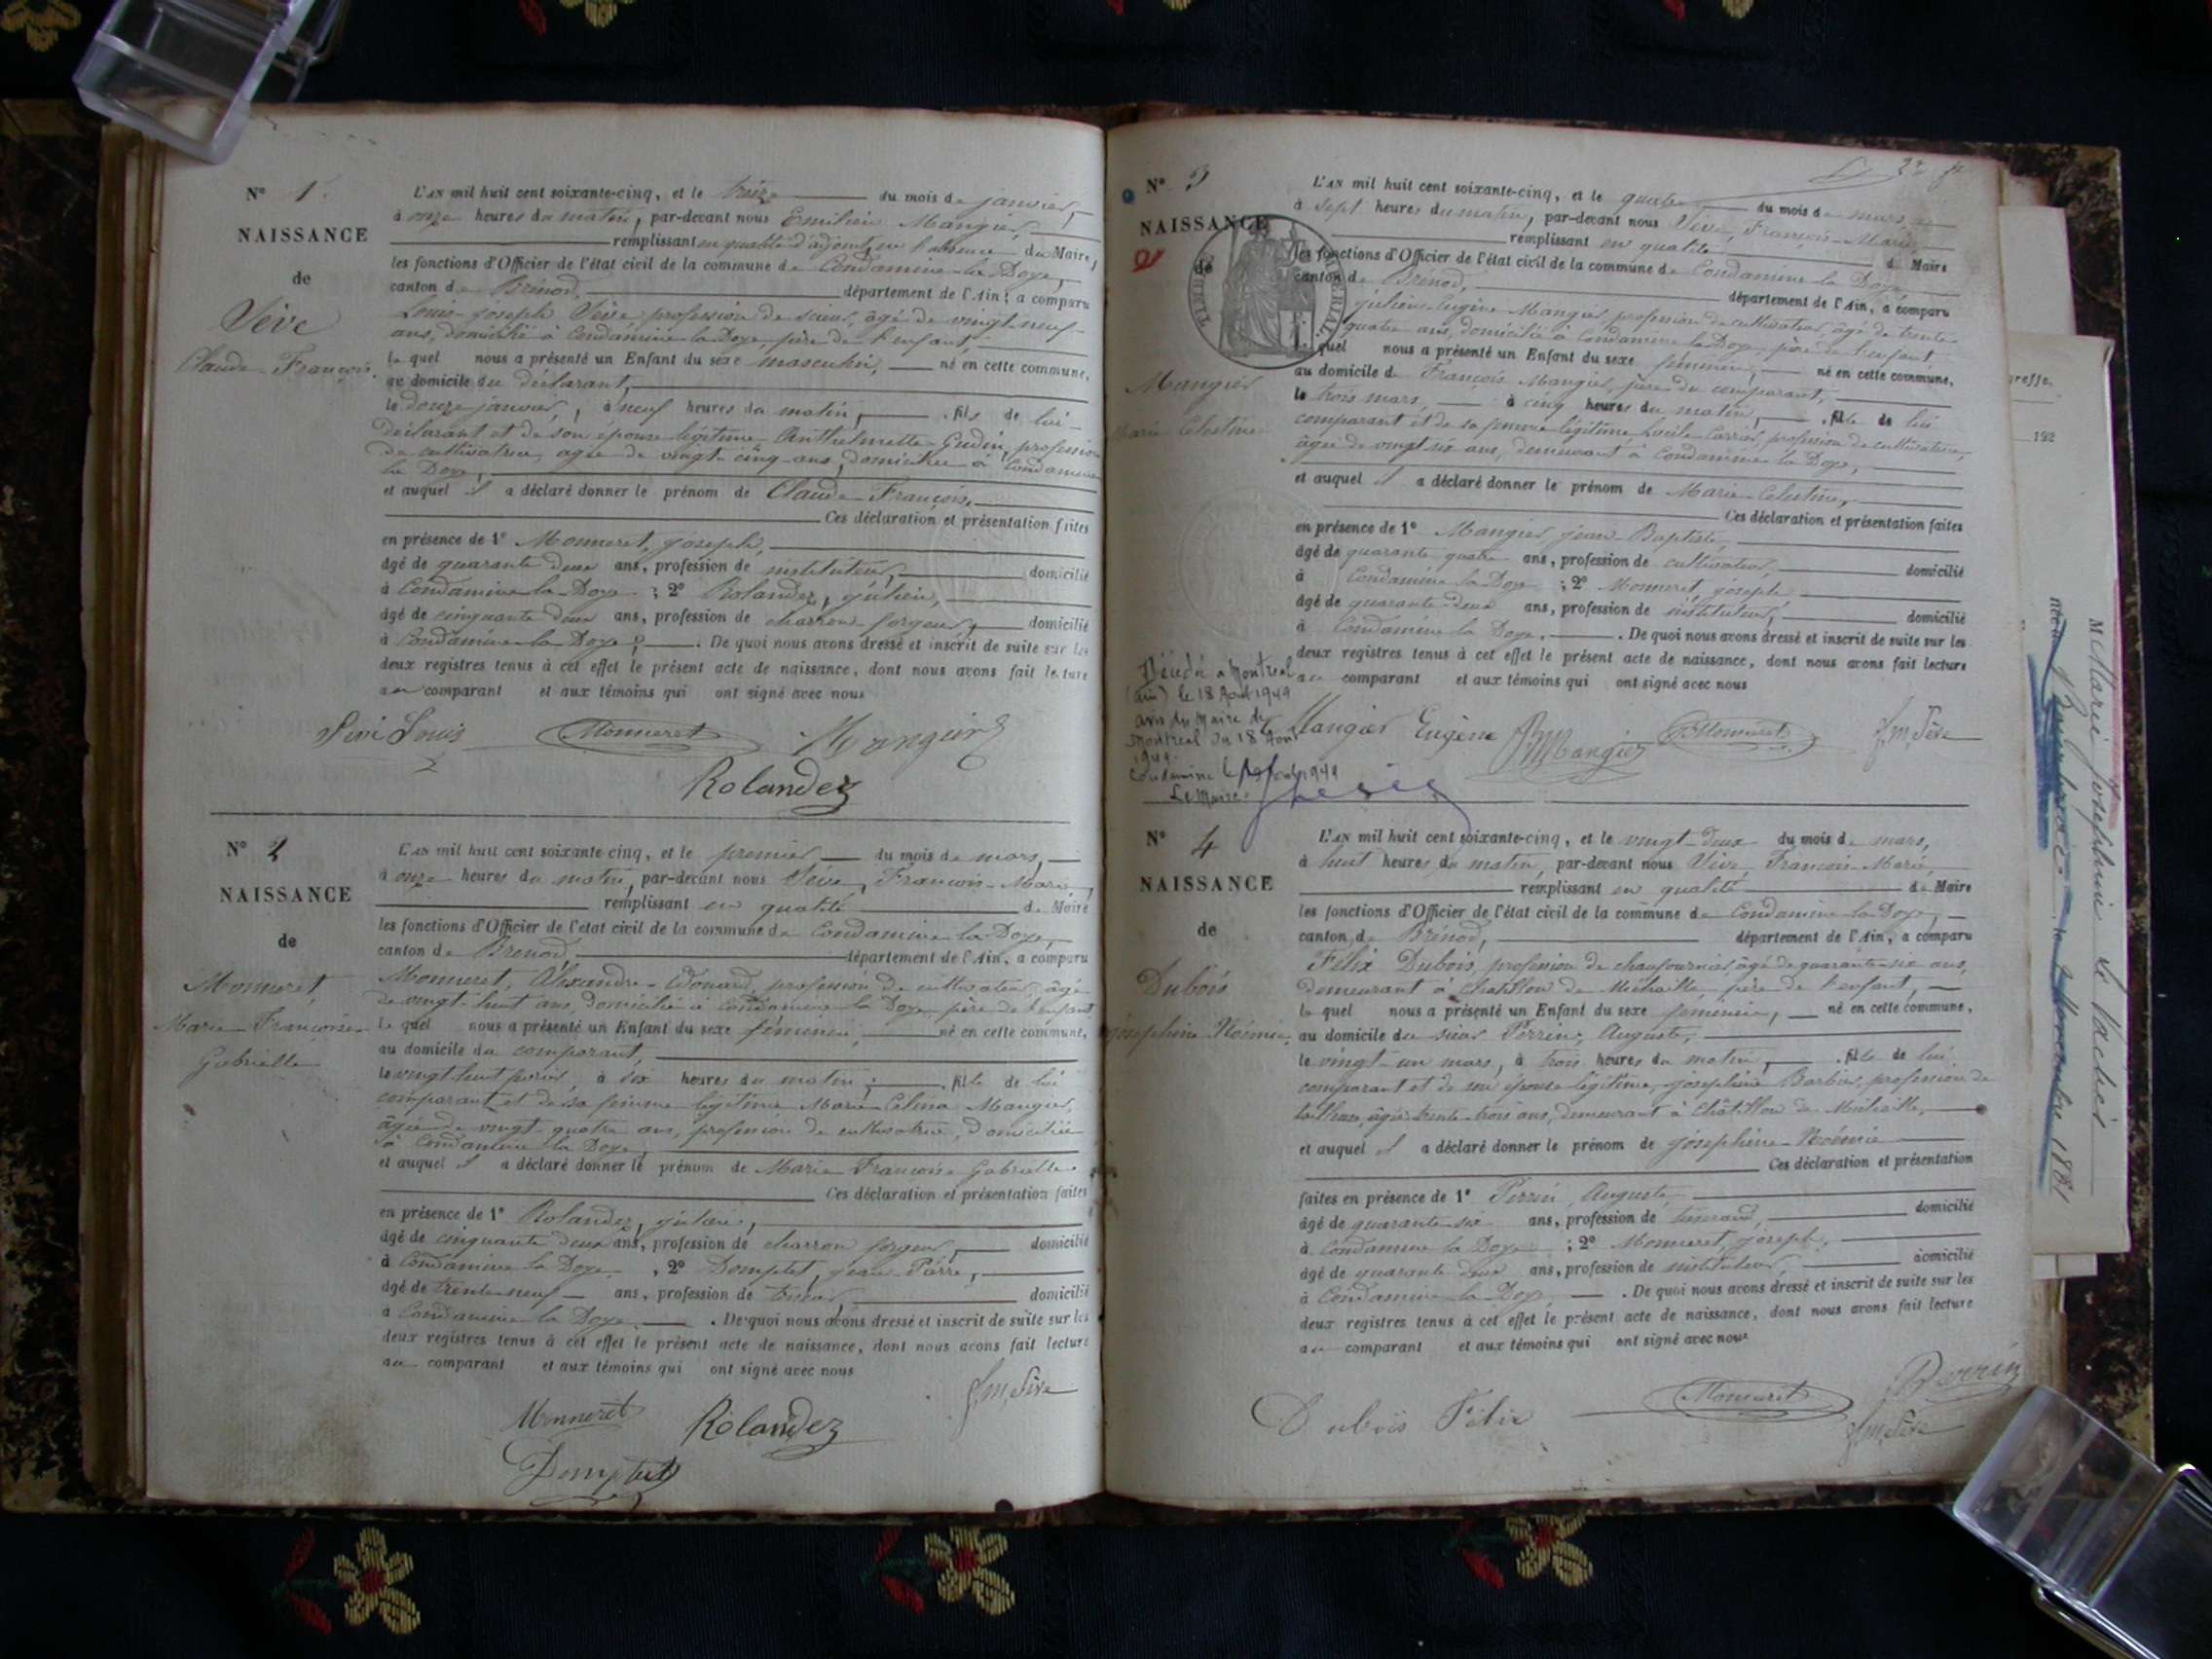 N° 1.
NAISSANCE
de
Sève
Claude François.
L'AN mil huit cent soixante-cinq, et le treize du mois de janvier,
à onze heures du matin, par-devant nous Emilien Mangier,
remplissant en qualité d'adjoint, en l'absence du Maire,
les fonctions d'Officier de l'état civil de la commune de Condamine-la-Doye,
canton de Brénod, département de l'Ain, a comparu
Louis-joseph Sève profession de scieur, âgé de vingt-neuf
ans, domicilié à Condamine-la-Doye, père de l'enfant,
le quel nous a présenté un Enfant du sexe masculin, né en cette commune,
au domicile du déclarant,
le douze janvier, à neuf heures du matin, fils de lui
déclarant et de son épouse légitime Anthelmette Gudin, profession
de cultivatrice, âgée de vingt-cinq ans, domiciliée à Condamine
la Doye,
et auquel il a déclaré donner le prénom de Claude François,
Ces déclaration et présentation faites
en présence de 1° Monneret, joseph,
âgé de quarante deux ans, profession de instituteur, domicilié
à Condamine-la-Doye ; 2° Rolandez, julien,
âgé de cinquante deux ans, profession de charron-forgeur, domicilié
à Condamine-la-Doye ; . De quoi nous avons dressé et inscrit de suite sur les
deux registres tenus à cet effet le présent acte de naissance, dont nous avons fait lecture
au comparant et aux témoins qui ont signé avec nous
Sève Louis Monneret Mangier
Rolandez
N° 2
NAISSANCE
de
Monneret,
Marie Françoise
Gabrielle
L'AN mil huit cent soixante-cinq, et le premier du mois de mars,
à onze heures du matin, par-devant nous Sève, François-Marie,
remplissant en qualité de Maire
les fonctions d'Officier de l'état civil de la commune de Condamine-la-Doye,
canton de Brenod, département de l'Ain, a comparu
Monneret, Alexandre-Edouard, profession de cultivateur, âgé
de vingt-huit ans, domicilié à Condamine la Doye, père de l'enfant
le quel nous a présenté un Enfant du sexe féminin, né en cette commune,
au domicile du comparant,
le vingt huit février, à six heures du matin ; fille de lui
comparant et de sa femme légitime Marie-Célina Mangier,
âgée de vingt-quatre ans, profession de cultivatrice, domiciliée
à Condamine la Doye,
et auquel il a déclaré donner le prénom de Marie Françoise Gabrielle.
Ces déclaration et présentation faites
en présence de 1° Rolandez, julien,
âgé de cinquante deux ans, profession de charron forgeur, domicilié
à Condamine la Doye , 2° Domptet, jean Pierre,
âgé de trente-neuf ans, profession de domicilié
à Condamine la Doye. . De quoi nous avons dressé et inscrit de suite sur les
deux registres tenus à cet effet le présent acte de naissance, dont nous avons fait lecture
au comparant et aux témoins qui ont signé avec nous
Monneret Rolandez fm, Sève
Domptet
N° 3
NAISSANCE
de
TIMBRE IMPÉRIAL
Mangier
Marie Célestine
L'AN mil huit cent soixante-cinq, et le quatre du mois de mars,
à sept heures du matin, par-devant nous Sève, François-Marie
remplissant en qualité de Maire
les fonctions d'Officier de l'état civil de la commune de Condamine la Doye
canton de Brénod, département de l'Ain, a comparu
julien Eugène Mangier, profession de cultivateur, âgé de trente
quatre ans, domicilié à Condamine la Doye, père de l'enfant
le quel nous a présenté un Enfant du sexe féminin, né en cette commune,
au domicile de François Mangier, père du comparant,
le trois mars, à cinq heures du matin, fille de lui
comparant et de sa femme légitime Lucile Carrier, profession de cultivatrice,
âgée de vingt six ans, demeurant à Condamine la Doye,
et auquel il a déclaré donner le prénom de Marie Célestine,
Ces déclaration et présentation faites
en présence de 1° Mangier jean Baptiste,
âgé de quarante quatre ans, profession de cultivateur, domicilié
à Condamine la Doye ; 2° Monneret, joseph
âgé de quarante-deux ans, profession de instituteur, domicilié
à Condamine la Doye, . De quoi nous avons dressé et inscrit de suite sur les
deux registres tenus à cet effet le présent acte de naissance, dont nous avons fait lecture
au comparant et aux témoins qui ont signé avec nous
Décédée à Montreal
(Ain) le 18 Aout 1949
avis du Maire de
Montreal du 18 Aout
1949.
Condamine le 1949
Le Maire.
Mangier Eugène Mangier Monneret fm, Sève
N° 4
NAISSANCE
de
Dubois
joséphine Noémie,
L'AN mil huit cent soixante-cinq, et le vingt-deux du mois de mars,
à huit heures du matin, par-devant nous Sève, François-Marie,
remplissant en qualité de Maire
les fonctions d'Officier de l'état civil de la commune de Condamine la Doye,
canton de Brénod, département de l'Ain, a comparu
Félix Dubois, profession de chaufournier, âgé de quarante-six ans,
demeurant à Chatillon de Michaille, père de l'enfant,
le quel nous a présenté un Enfant du sexe féminin, né en cette commune,
au domicile du sieur Perrin, Auguste,
le vingt-un mars, à trois heures du matin, fille de lui
comparant et de son épouse légitime, joséphine Barbier, profession de
tailleuse, âgée trente-trois ans, demeurant à Châtillon de Michaille,
et auquel il a déclaré donner le prénom de joséphine-Noémie
Ces déclaration et présentation
faites en présence de 1° Perrin, Auguste,
âgé de quarante-six ans, profession de tisserand, domicilié
à Condamine la Doye ; 2° Monneret, joseph,
âgé de quarante deux ans, profession de instituteur, domicilié
à Condamine la Doye . De quoi nous avons dressé et inscrit de suite sur les
deux registres tenus à cet effet le présent acte de naissance, dont nous avons fait lecture
au comparant et aux témoins qui ont signé avec nous
Dubois Félix Monneret Perrin
fm, Sève
greffe.
192
M Marie Joséphine
Novembre 1881